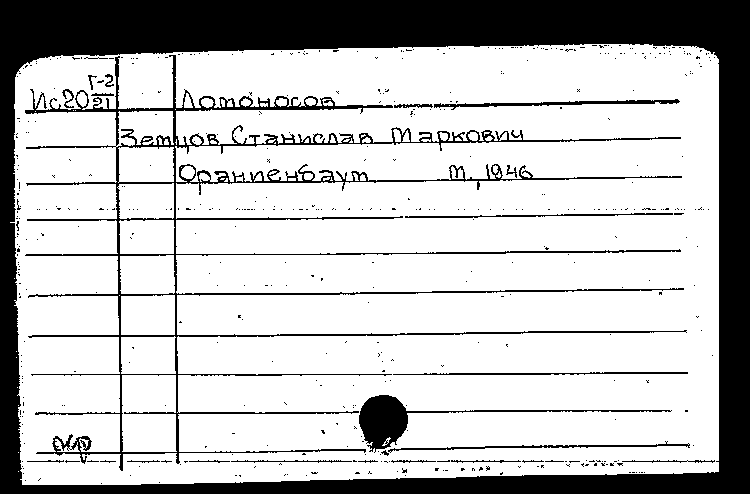 Ис20 Г-2/21 Ломоносов
Земцов, Станислав Маркович
Ораниенбаум М., 1946